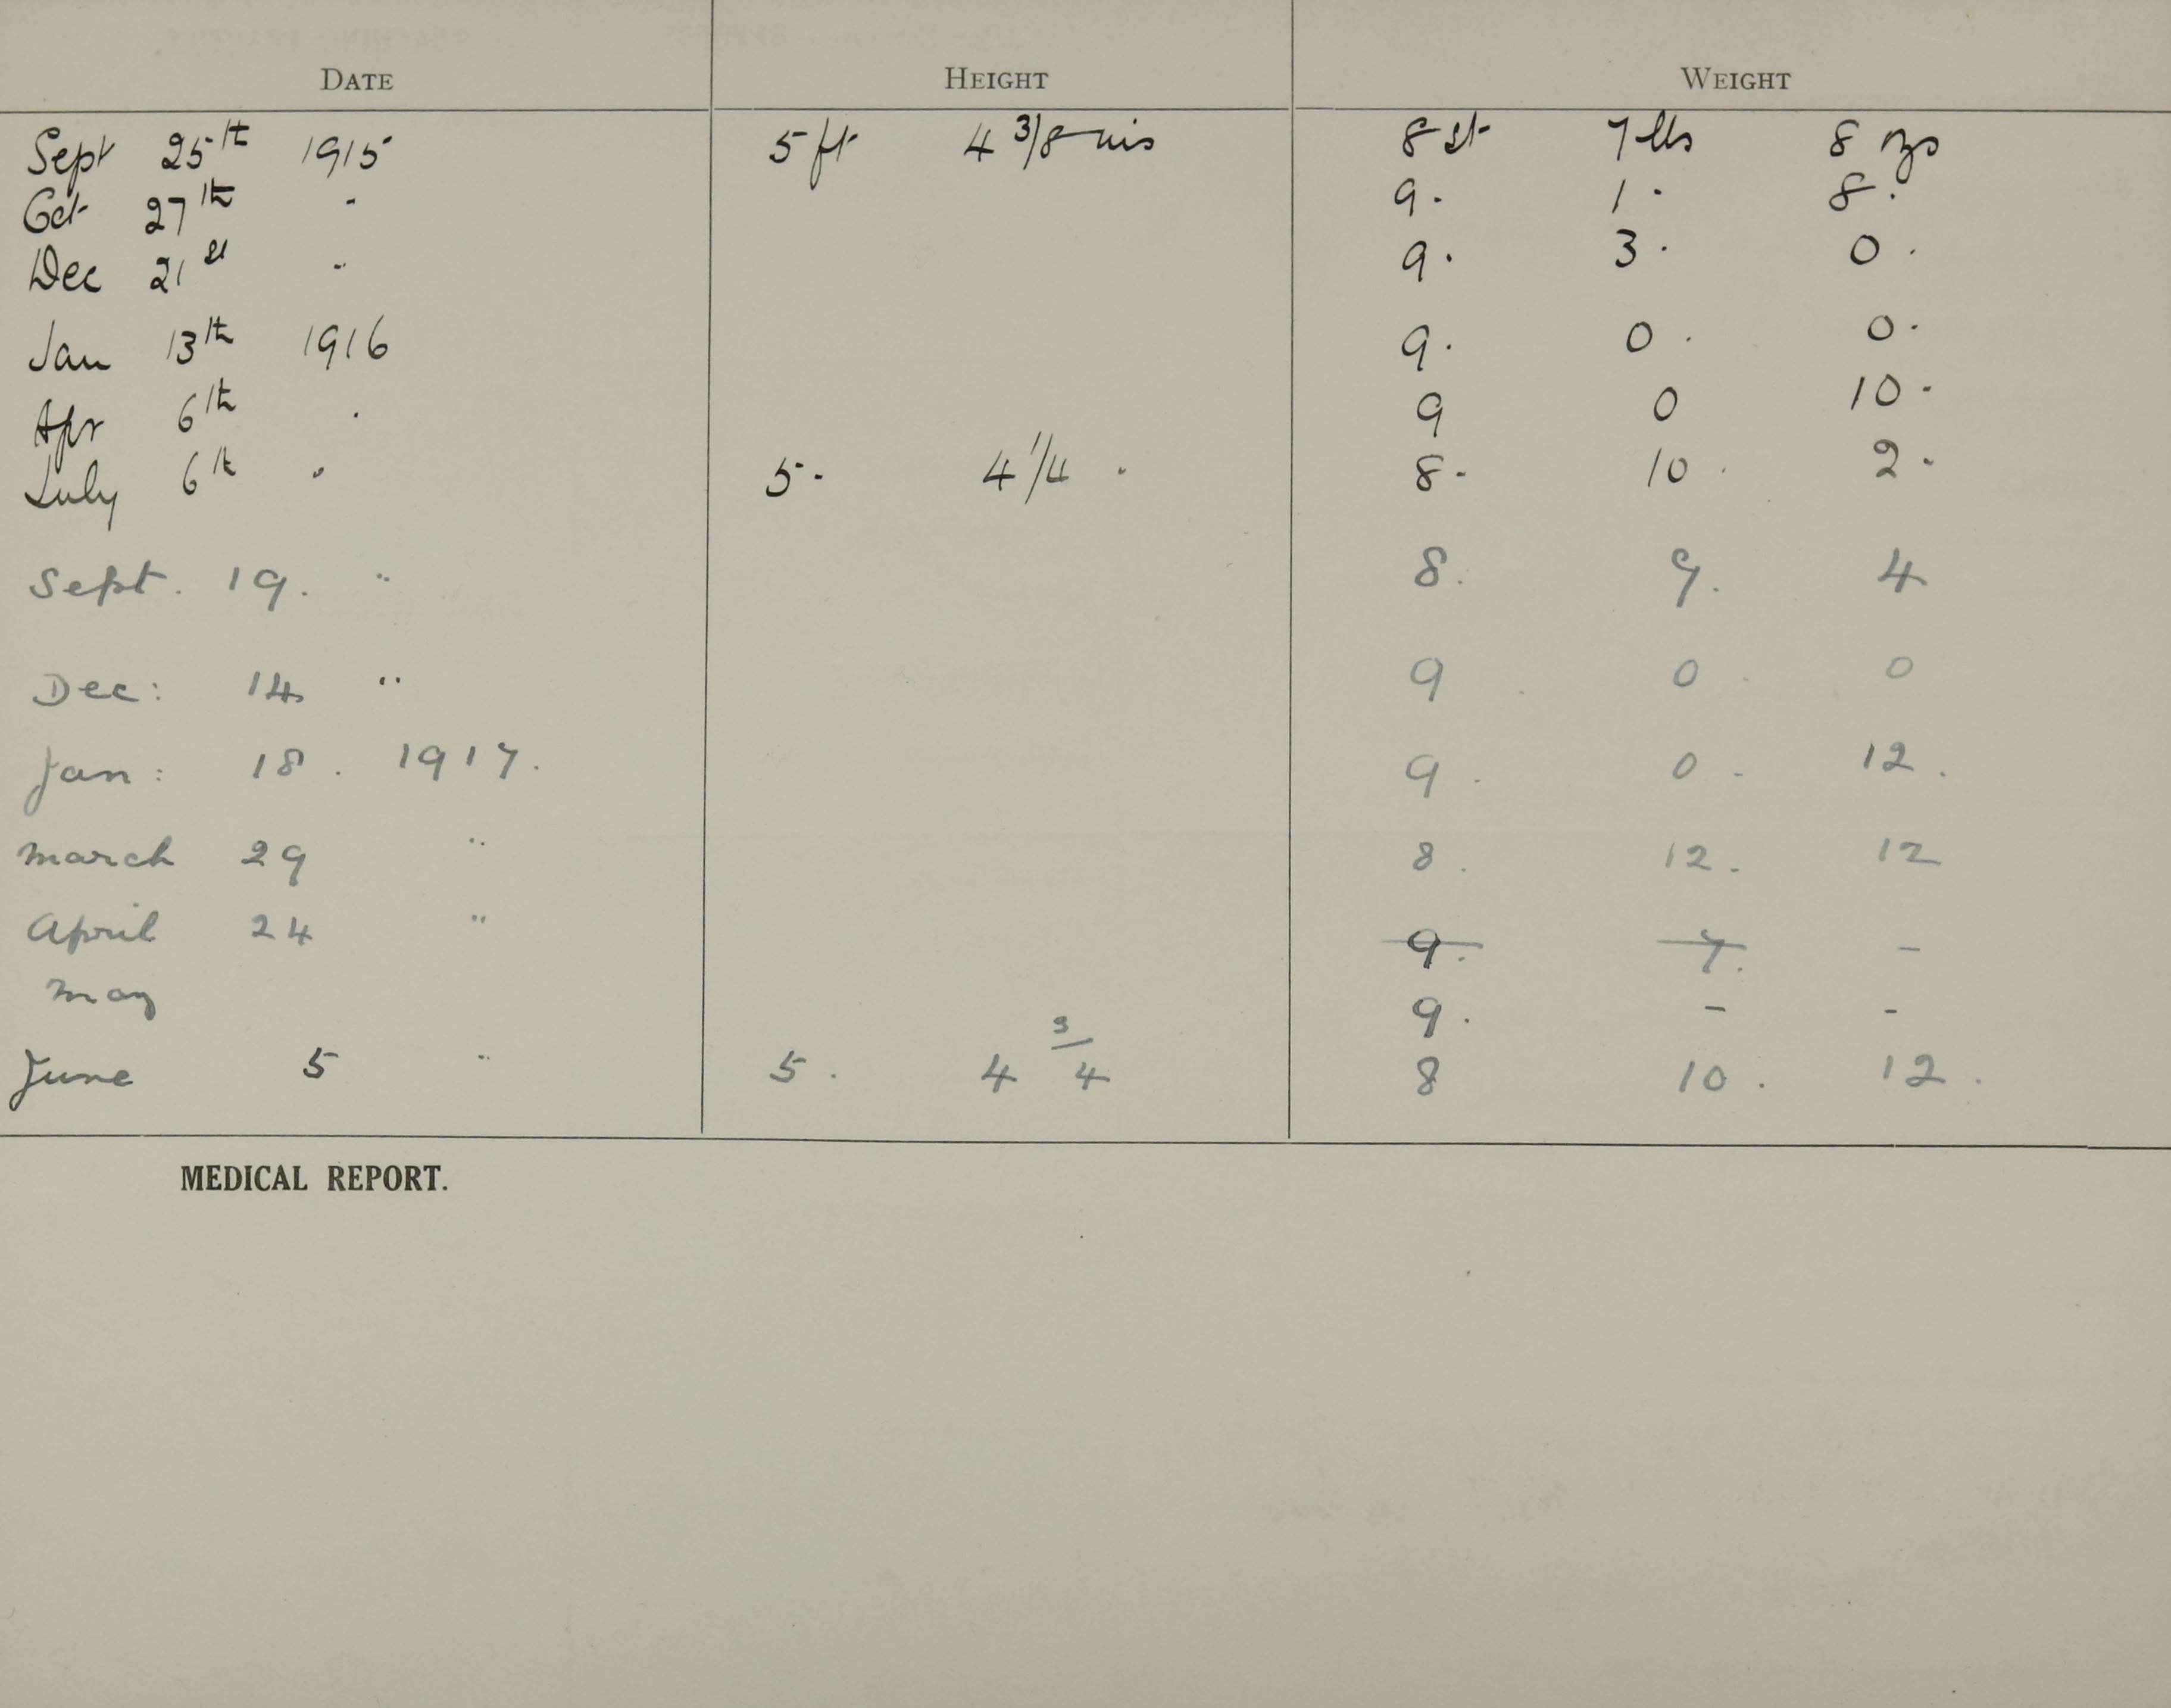 DATE HEIGHT WEIGHT
Sept 25th 1915 5 ft 4 3/8 ins 8 st 7 lbs 8 ozs
Oct 27th " 9. 1. 8.
Dec 21st " 9. 3. 0.
Jan 13th 1916 9. 0. 0.
Apr 6th " 9 0 10.
July 6th " 5. 4 1/4 " 8. 10. 2.
Sept. 19. " 8. 9. 4
Dec: 14 " 9 . 0 . 0
Jan: 18. 1917. 9. 0. 12.
March 29 " 8. 12. 12
April 24 " 9. 7. -
May 9. - -
June 5 " 5. 4 3/4 8 10. 12.
MEDICAL REPORT.